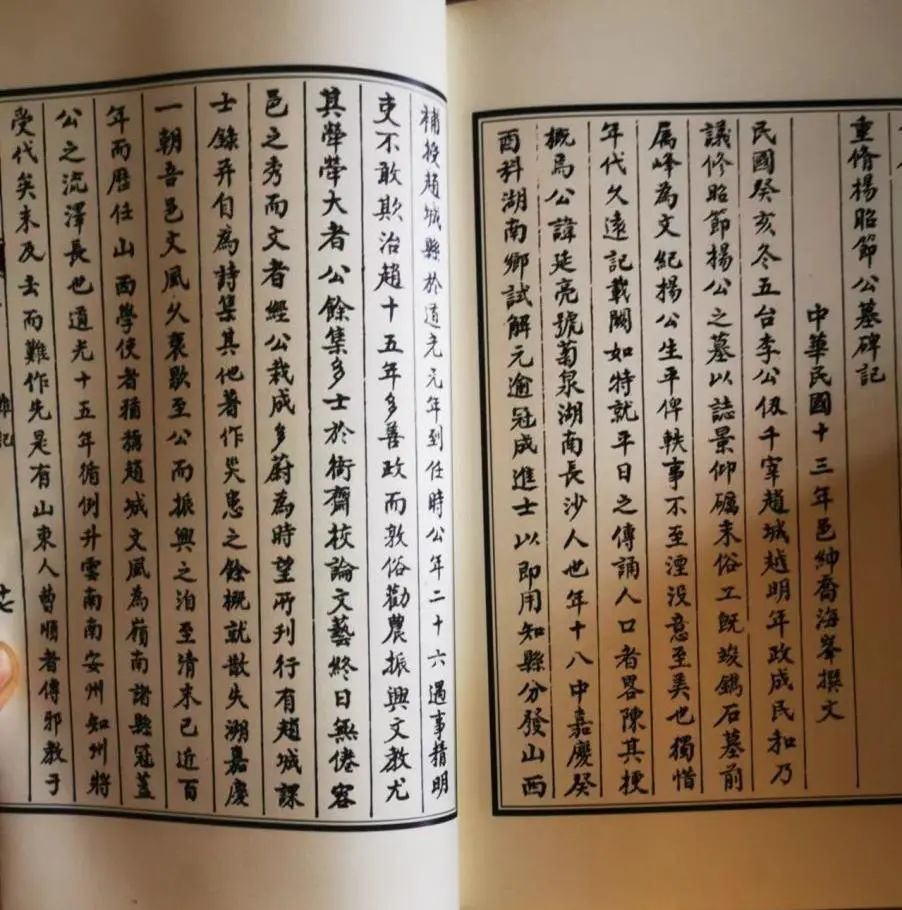 重脩楊昭節公墓碑記
中華民國十三年邑紳喬海峯撰文
民國癸亥冬五台李公伋千宰趙城越明年政成民和乃
議修昭節揚公之墓以誌景仰礪末俗工既竣鐫石墓前
属峰為文紀揚公生平俾軼事不至湮没意至美也獨惜
年代久遠記載闕如特就平日之傳誦人口者畧陳其梗
概焉公諱延亮號菊泉湖南長沙人也年十八中嘉慶癸
酉科湖南鄉試解元逾冠成進士以即用知縣分發山西
補授趙城縣於道光元年到任時公年二十六遇事精明
吏不敢欺治趙十五年多善政而敦俗勸農振興文教尤
其犖犖大者公餘集多士於衙齋技論文藝終日無倦容
邑之秀而文者經公栽成多蔚為時望所刊行有趙城課
士錄弁自為詩集其他著作災患之餘概就散失溯嘉慶
一朝吾邑文風久衰歇至公而振興之洎至清末已近百
年而歷任山西學使者猶稱趙城文風為嶺南諸縣冠蓋
公之流澤長也道光十五年循例升雲南南安州知州將
受代矣未及去而難作先是有山東人曹順者傳邪教于
雜記
十七